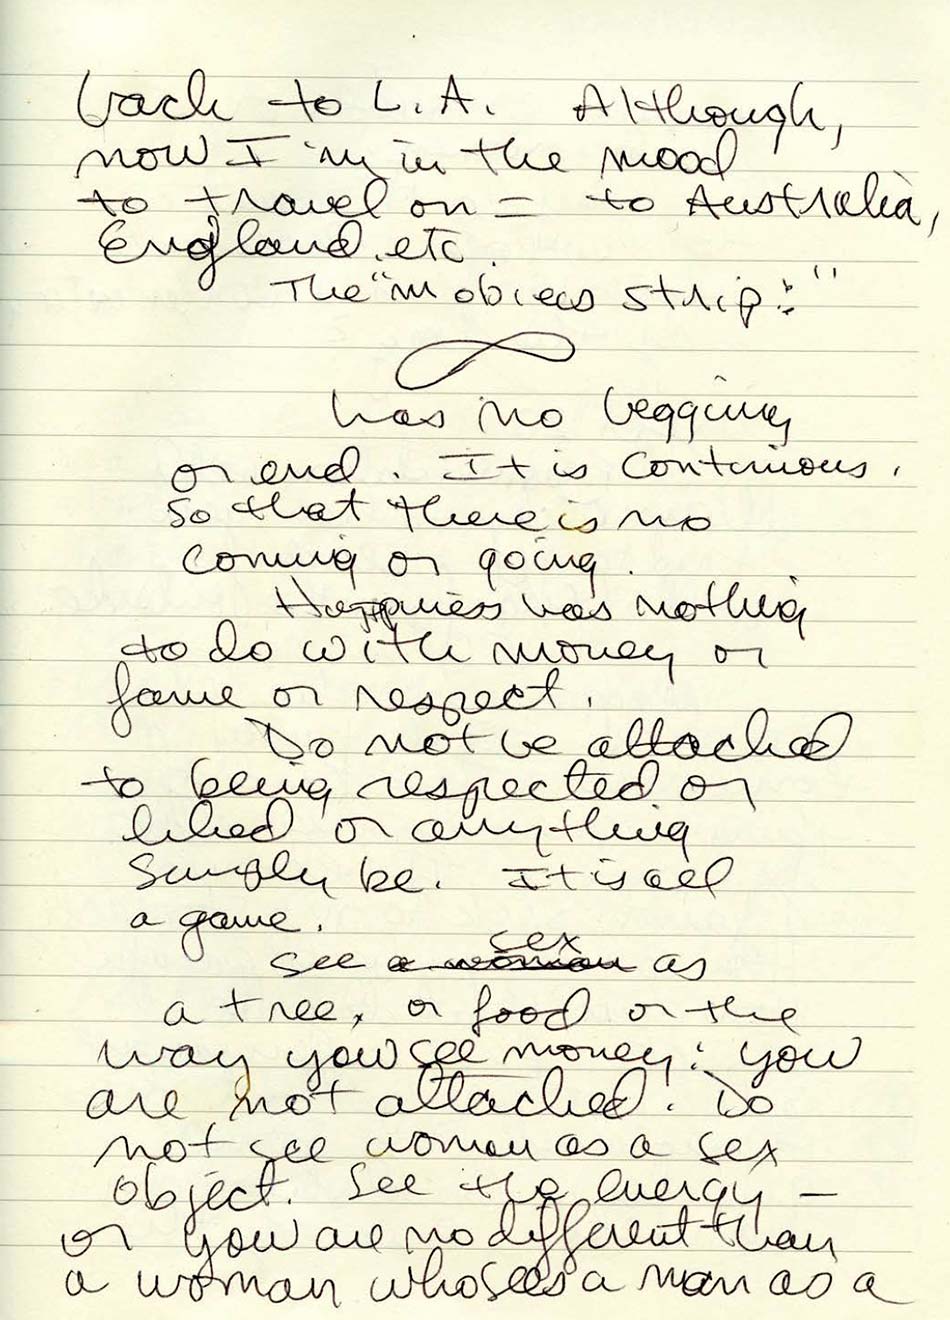 back to L.A. Although,
now I'm in the mood
to travel on = to Australia,
England etc.
The "mobieus strip:"
has no beggining
or end. It is continuous.
So that there is no
coming or going.
Happiness has nothing
to do with money or
fame or respect.
Do not be attached
to being respected or
liked or anything
Simply be. It is all
a game.
sex
see a woman as
a tree, or food or the
way you see money: you
are not attached. Do
not see woman as a sex
object. See the energy —
or you are no different than
a woman who sees a man as a